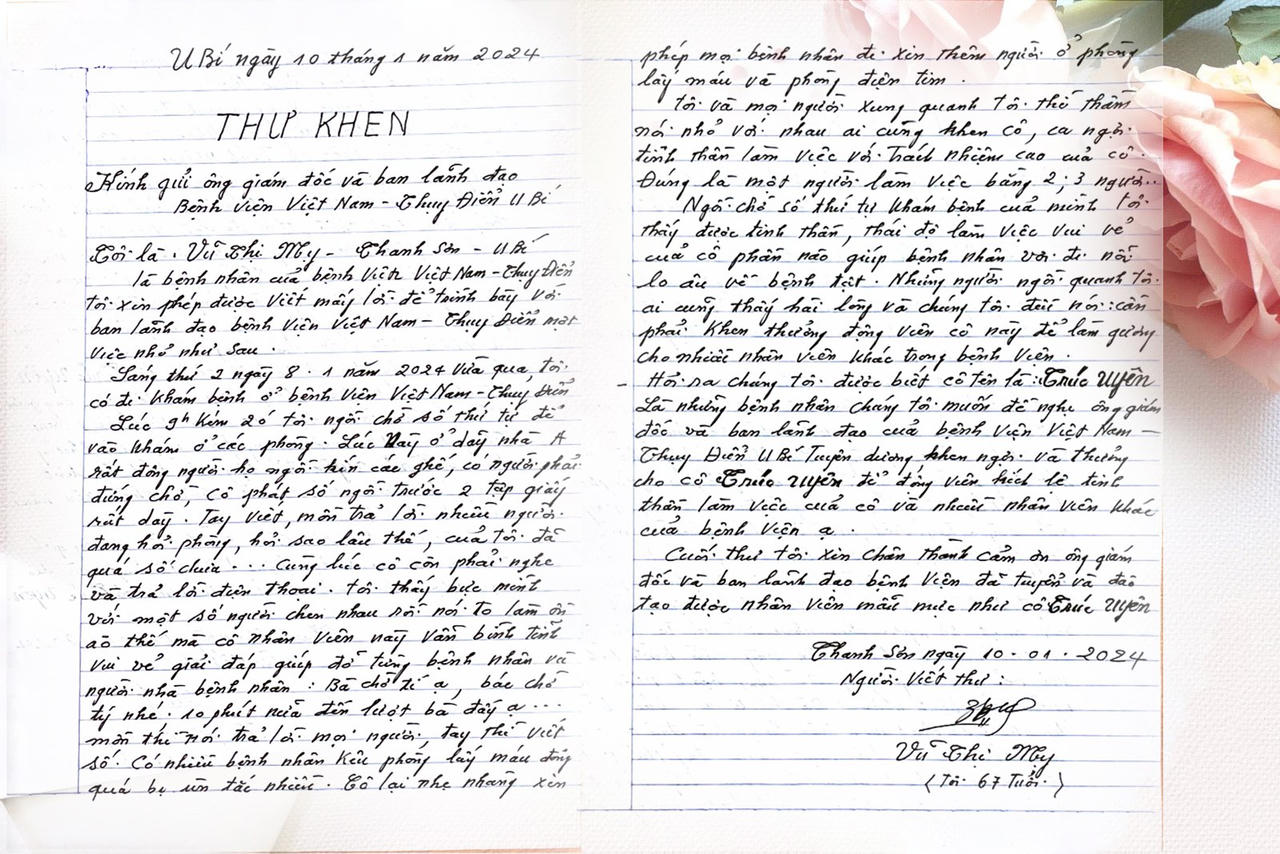 U Bí ngày 10 tháng 1 năm 2024
THƯ KHEN
Kính gửi ông giám đốc và ban lãnh đạo
Bệnh viện Việt Nam - Thụy Điển U Bí
Tôi là : Vũ Thị My - Thanh Sơn - U Bí
là bệnh nhân của bệnh viện Việt Nam - Thụy Điển
tôi xin phép được viết mấy lời để trình bày với
ban lãnh đạo bệnh viện Việt Nam - Thụy Điển một
việc nhỏ như sau .
Sáng thứ 2 ngày 8 . 1 năm 2024 vừa qua, tôi
có đi khám bệnh ở bệnh viện Việt Nam - Thụy Điển
Lúc 9h kém 20 tôi ngồi chờ số thứ tự để
vào khám ở các phòng . Lúc này ở dãy nhà A
rất đông người họ ngồi kín các ghế, có người phải
đứng chờ, cô phát số ngồi trước 2 tập giấy
rất dày . Tay viết, mồm trả lời nhiều người
đang hỏi phòng, hỏi sao lâu thế, của tôi đã
quá số chưa ... Cùng lúc cô còn phải nghe
và trả lời điện thoại . tôi thấy bực mình
với một số người chen nhau rồi nói to làm ồn
ào thế mà cô nhân viên này vẫn bình tĩnh
vui vẻ giải đáp giúp đỡ từng bệnh nhân và
người nhà bệnh nhân : Bà chờ tí ạ, bác chờ
tý nhé . 10 phút nữa đến lượt bà đấy ạ ...
mồm thì nói trả lời mọi người, tay thì viết
số . Có nhiều bệnh nhân kêu phòng lấy máu đông
quá bị ùn tắc nhiều . Cô lại nhẹ nhàng xin
phép mọi bệnh nhân đi xin thêm người ở phòng
lấy máu và phòng điện tim .
tôi và mọi người xung quanh tôi thì thầm
nói nhỏ với nhau ai cũng khen cô, ca ngợi
tinh thần làm việc với trách nhiệm cao của cô .
Đúng là một người làm việc bằng 2; 3 người ..
Ngồi chờ số thứ tự khám bệnh của mình tôi
thấy được tinh thần, thái độ làm việc vui vẻ
của cô phần nào giúp bệnh nhân vơi đi nỗi
lo âu về bệnh tật . Những người ngồi quanh tôi
ai cũng thấy hài lòng và chúng tôi đều nói : cần
phải khen thưởng động viên cô này để làm gương
cho nhiều nhân viên khác trong bệnh viện .
- Hỏi ra chúng tôi được biết cô tên là : Trúc Uyên
Là những bệnh nhân chúng tôi muốn đề nghị ông giám
đốc và ban lãnh đạo của bệnh viện Việt Nam -
Thụy Điển U Bí Tuyên dương khen ngợi và thưởng
cho cô Trúc Uyên để động viên kích lệ tinh
thần làm việc của cô và nhiều nhân viên khác
của bệnh viện ạ .
Cuối thư tôi xin chân thành cảm ơn ông giám
đốc và ban lãnh đạo bệnh viện đã tuyển và đào
tạo được nhân viên mẫu mực như cô Trúc Uyên
Thanh Sơn ngày 10 . 01 . 2024
Người viết thư :
Vũ Thị My
( Tôi 67 Tuổi )